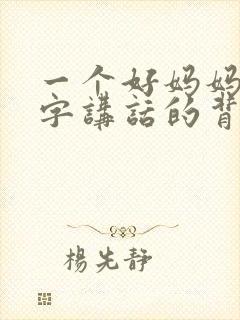 一个好妈妈
字講話的背
楊先靜